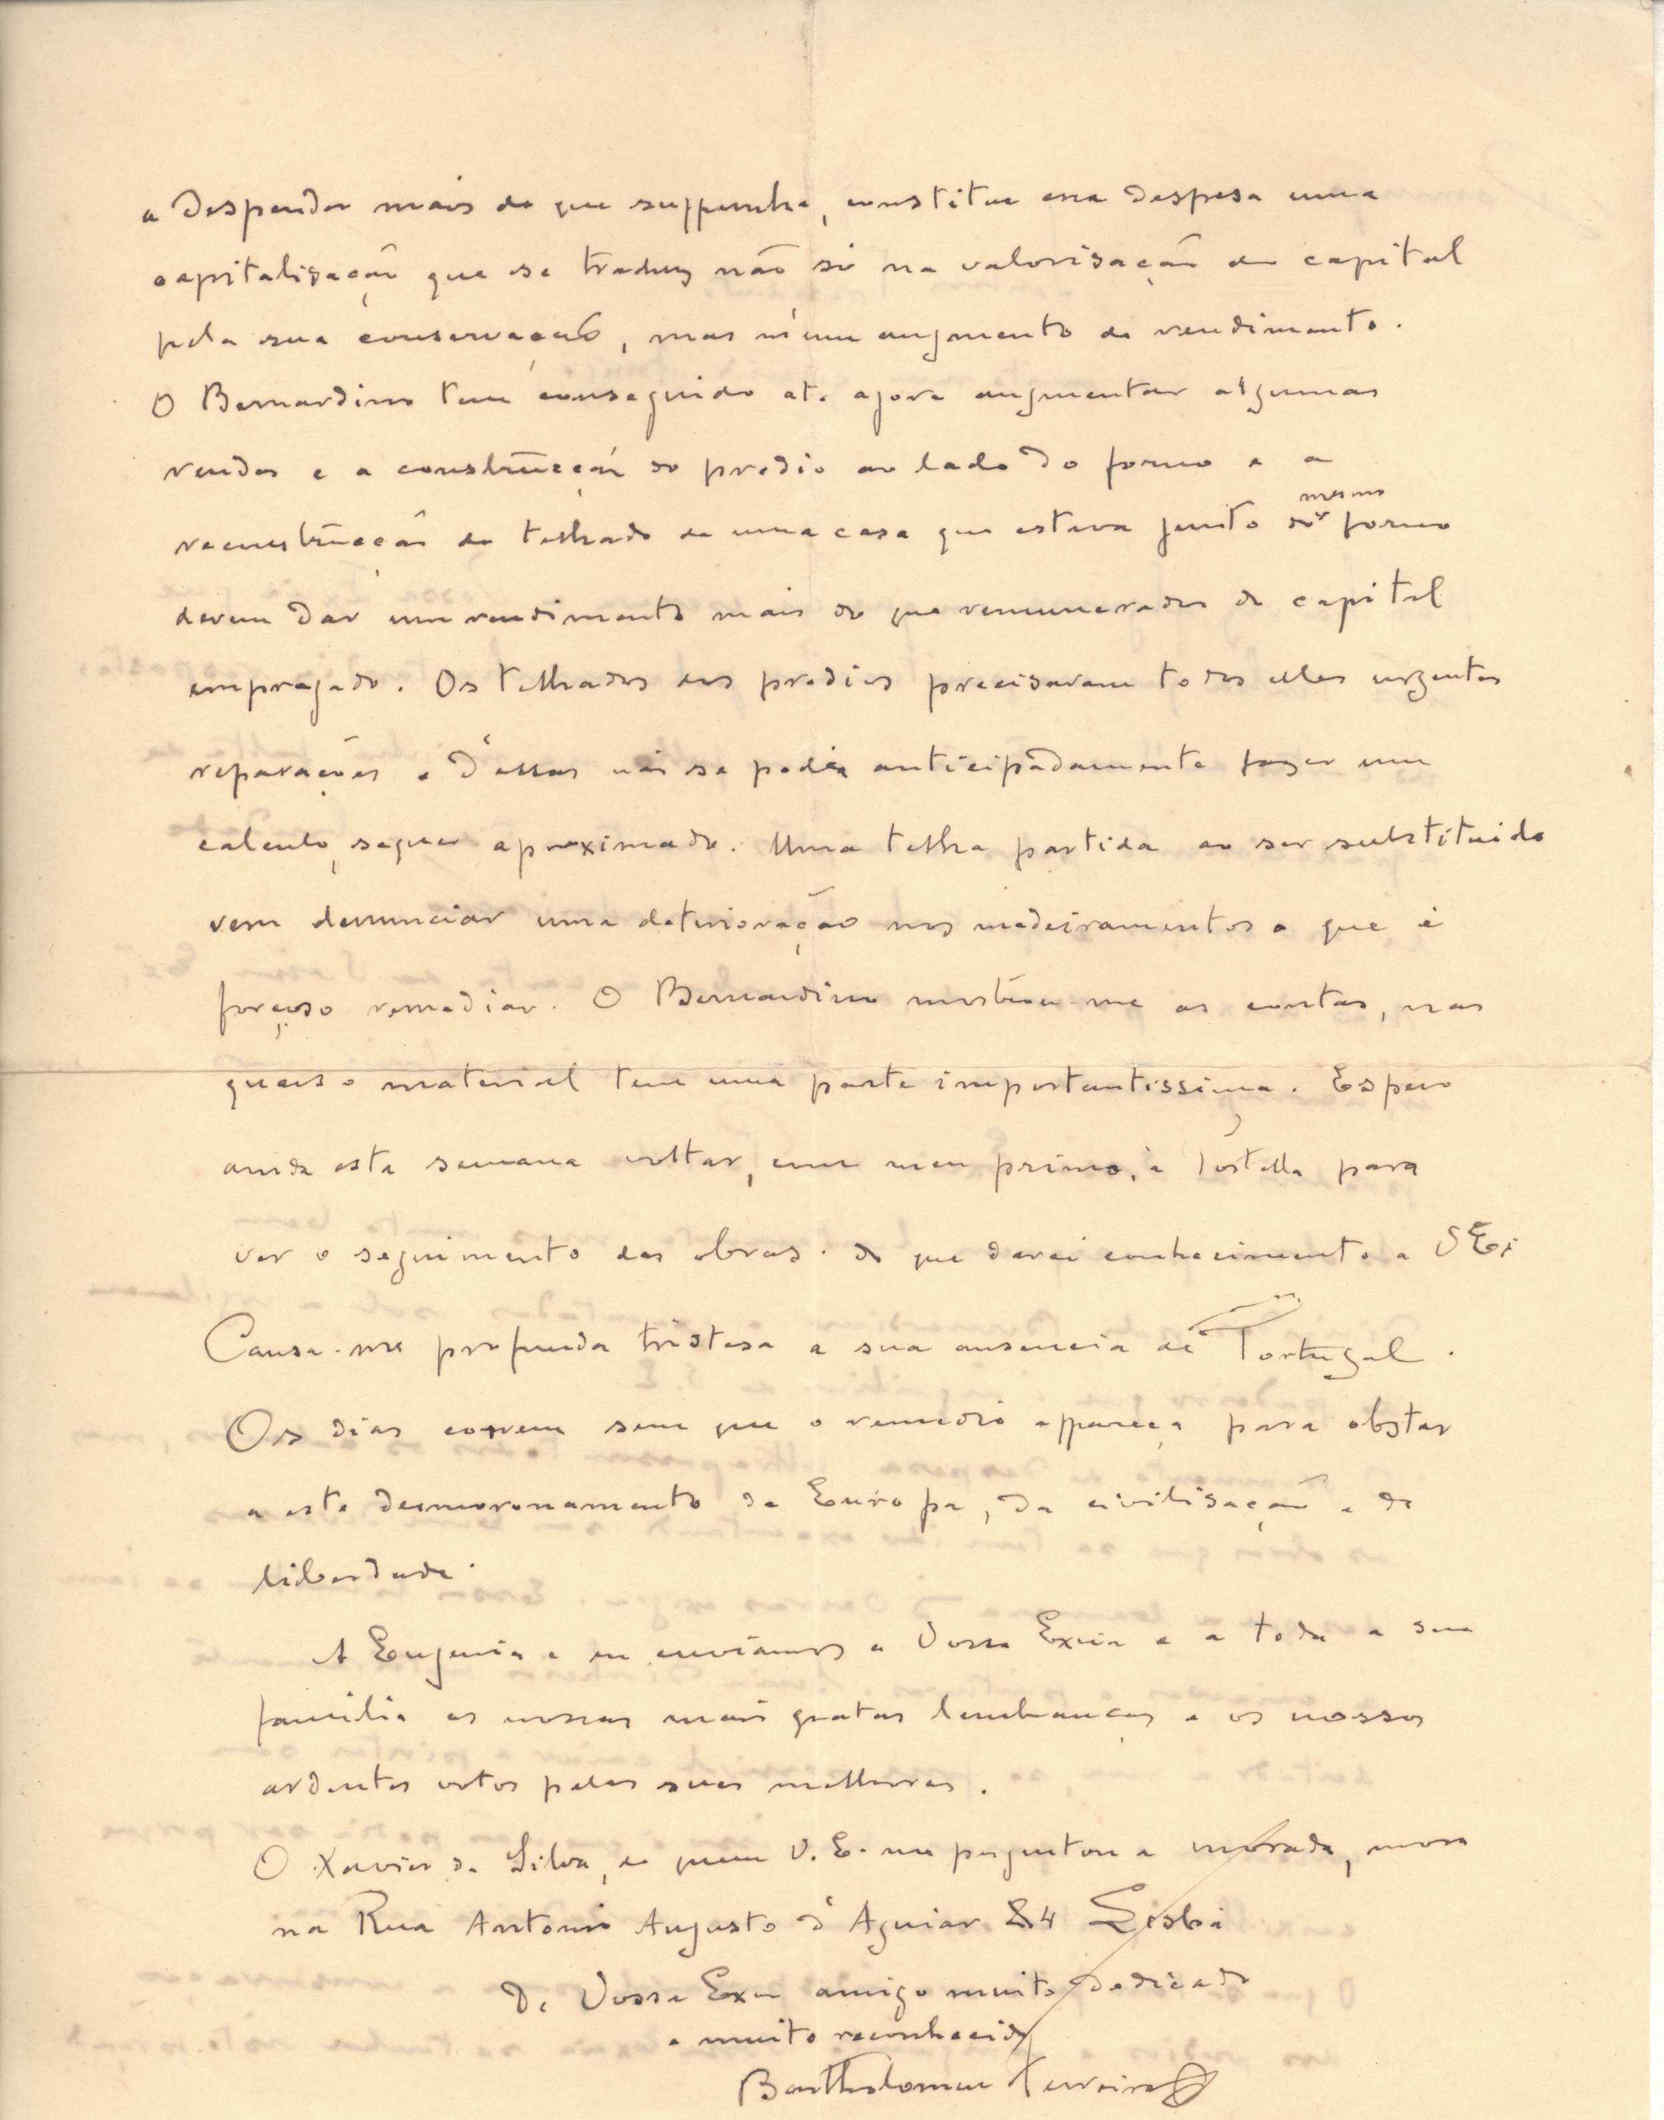 a despender mais do que suppunha, constitue essa despesa uma
capitalisação que se traduz não só na valorisação do capital
pela sua conservação, mas n'um augmento de rendimento.
O Bernardino tem conseguido até agora augmentar algumas
rendas e a construcção do predio ao lado do forno e a
reconstrucção do telhado de uma casa que estava junto do mesmo forno
devem dar um rendimento mais do que remunerador do capital
empregado. Os telhados dos predios precisavam todos elles urgentes
reparações e d'essas não se podia anticipadamente fazer um
calculo, sequer aproximado. Uma telha partida ao ser substituida
vem denunciar uma deterioração nos madeiramentos a que é
forçoso remediar. O Bernardino mostrou-me as contas, nas
quaes o material tem uma parte importantissima. Espero
ainda esta semana voltar, com meu primo, à para
ver o seguimento das obras. do que darei conhecimento a V Ex.
Causa-me profunda tristesa a sua ausencia de Portugal.
Os dias correm sem que o remedio appareça para obstar
a este desmoronamento da Europa, da civilisação e da
liberdade.
A Eugenia e eu enviamos a Vossa Excia e a toda a sua
familia as nossas mais gratas lembranças e os nossos
ardentes votos pelas suas melhoras.
O Xavier da Silva, de quem V. E. me perguntou a morada, mora
na Rua Antonio Augusto d'Aguiar 84 Lisboa
De Vossa Exa amigo muito dedicado
e muito reconhecido
Bartholomeu Ferreira